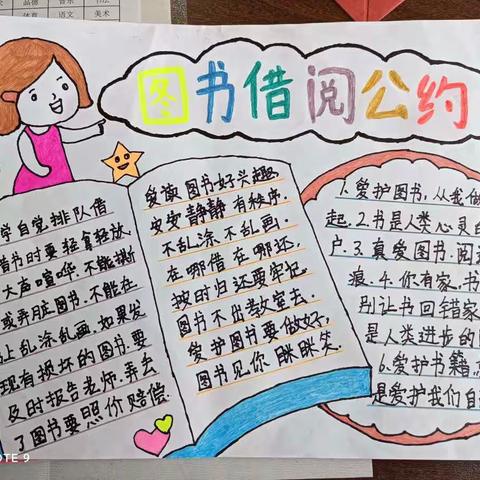 语文 美术
图书借阅公约
学自觉排队借
借书时要轻拿轻放,
大声喧哗.不能撕
或弄脏图书.不能在
上乱涂乱画.如果发
现有损坏的图书.要
及时报告老师.弄丢
了图书要照价赔偿.
爱读图书好兴趣,
安安静静有秩序.
不乱涂不乱画.
在哪借在哪还,
按时归还要牢记.
图书不出教室去.
爱护图书要做好,
图书见你眯眯笑.
1.爱护图书,从我做
起.2.书是人类心灵的
户.3.真爱图书.阅
浪.4.你有家,书
别让书回错家
是人类进步的
6.爱护书籍,
是爱护我们自
OTE 9